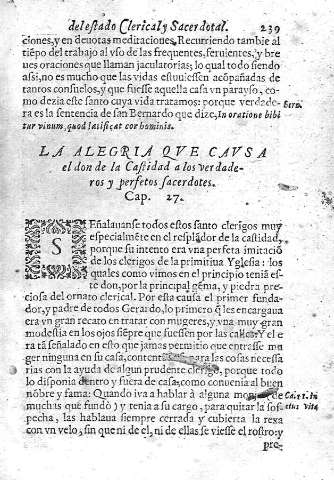 del estado Clerical y Sacerdotal. 239
ciones, y en deuotas meditaciones. Recurriendo tambiē al
tiēpo del trabajo al vso de las frequentes, feruientes, y bre
ues oraciones que llaman jaculatorias; lo qual todo siendo
assi, no es mucho que las vidas estuuiessen acōpañadas de
tantos consuelos, y que fuesse aquella casa vn parayso, co
mo dezia este santo cuya vida tratamos: porque verdade-
ra es la sentencia de san Bernardo que dize, In oratione bibi
Bern.
tur vinum, quod lætificat cor hominis.
LA ALEGRIA QVE CAVSA
el don de la Castidad a los verdade-
ros y perfetos sacerdotes.
Cap. 27.
SEñalauanse todos estos santo clerigos muy
especialmēte en el resplādor de la castidad,
porque su intento era vna perfeta imitació
de los clerigos de la primitiua Yglesia: los
quales como vimos en el principio teniā es
te don, por la principal gēma, y piedra pre-
ciosa del ornato clerical. Por esta causa el primer funda-
dor, y padre de todos Gerardo, lo primero q̄ les encargaua
era vn gran recato en tratar con mugeres, y vna muy gran
modestia en los ojos siēpre que fuessen por las calles. Y el e
ra tā señalado en esto que jamas permitio que entrasse mu
ger ninguna en su casa, para las cosas necessa
rias con la ayuda de algun prudente clerigo, porque todo
lo disponia dentro y fuera de casa, como conuenia al buen
nōbre y fama. Quando iua a hablar à alguna de
muchas que fundò) y tenia a su cargo, para quitar la sos
petcha, las hablaua siempre cerrada y cubierta la rexa
con vn velo, sin que ni de el, ni ellas se viesse el rostro: y
pre-